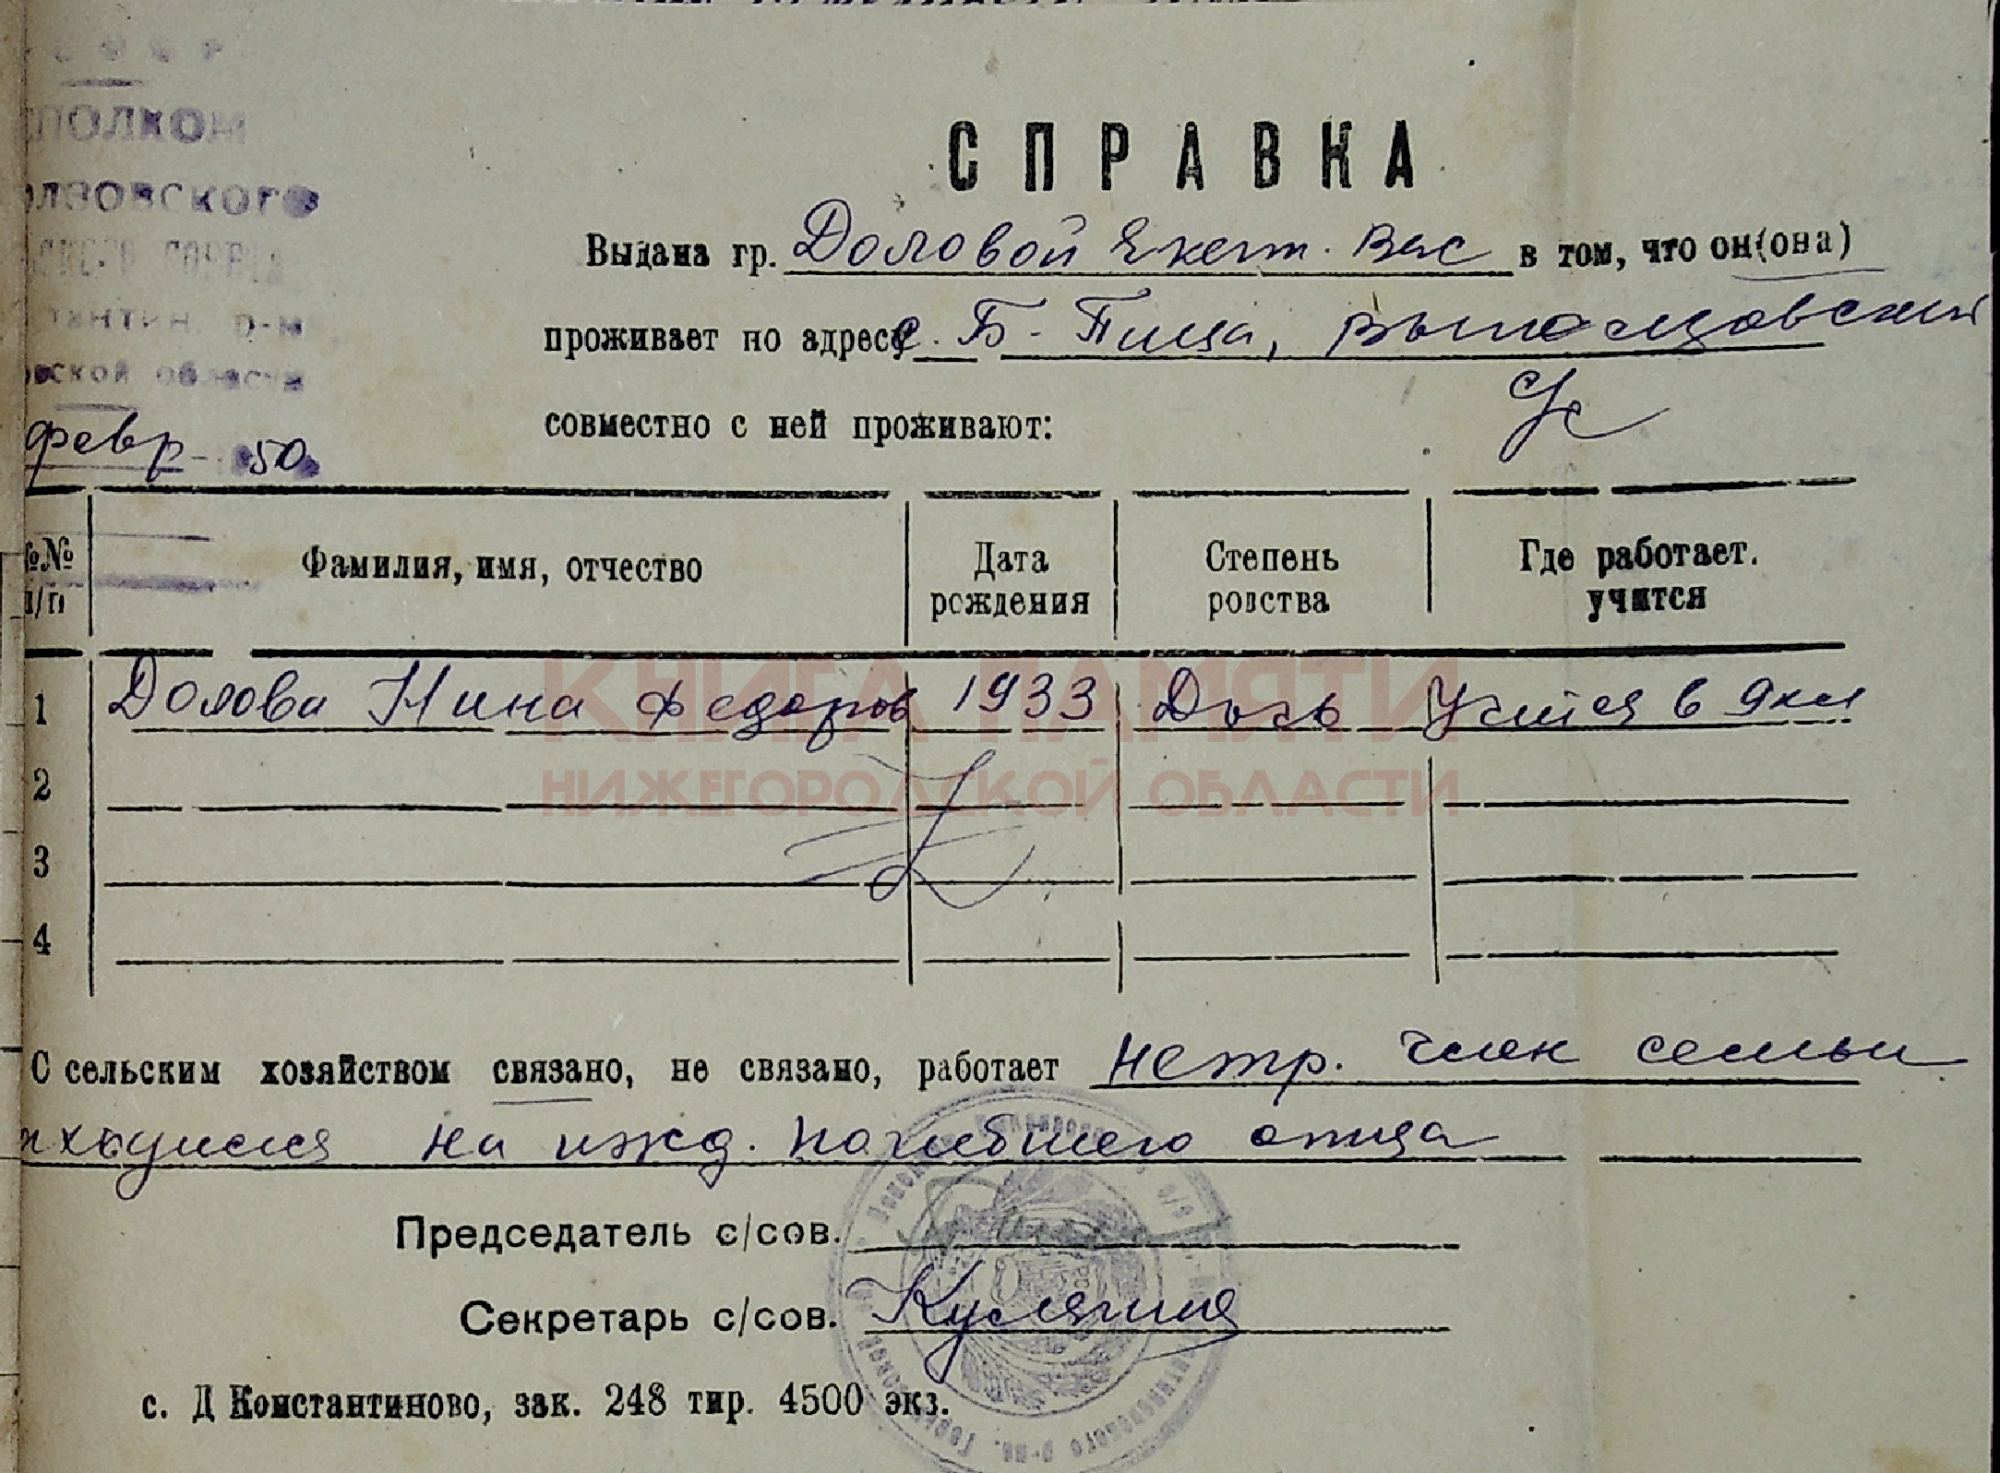 ПОЛКОМ
ОЛЗОВСКОГО
ТАНТИН. Р-Н
ВСКОЙ ОБЛАСТИ
февр 50
СПРАВКА
Выдана гр. Доловой Екат. Вас в том, что он(она)
проживает по адресу с. Б-Пица,
совместно с ней проживают:
№№ п/п
Фамилия, имя, отчество
Дата рождения
Степень родства
Где работает. учится
1 Долова Нина Федоров 1933 Дочь Учится в 9 кл
2
3
4
КНИГА ПАМЯТИ
НИЖЕГОРОДСКОЙ ОБЛАСТИ
С сельским хозяйством связано, не связано, работает нетр. член семьи
на ижд. погибшего отца
Председатель с/сов.
Секретарь с/сов. Кулягина
с. Д Константиново, зак. 248 тир. 4500 экз.